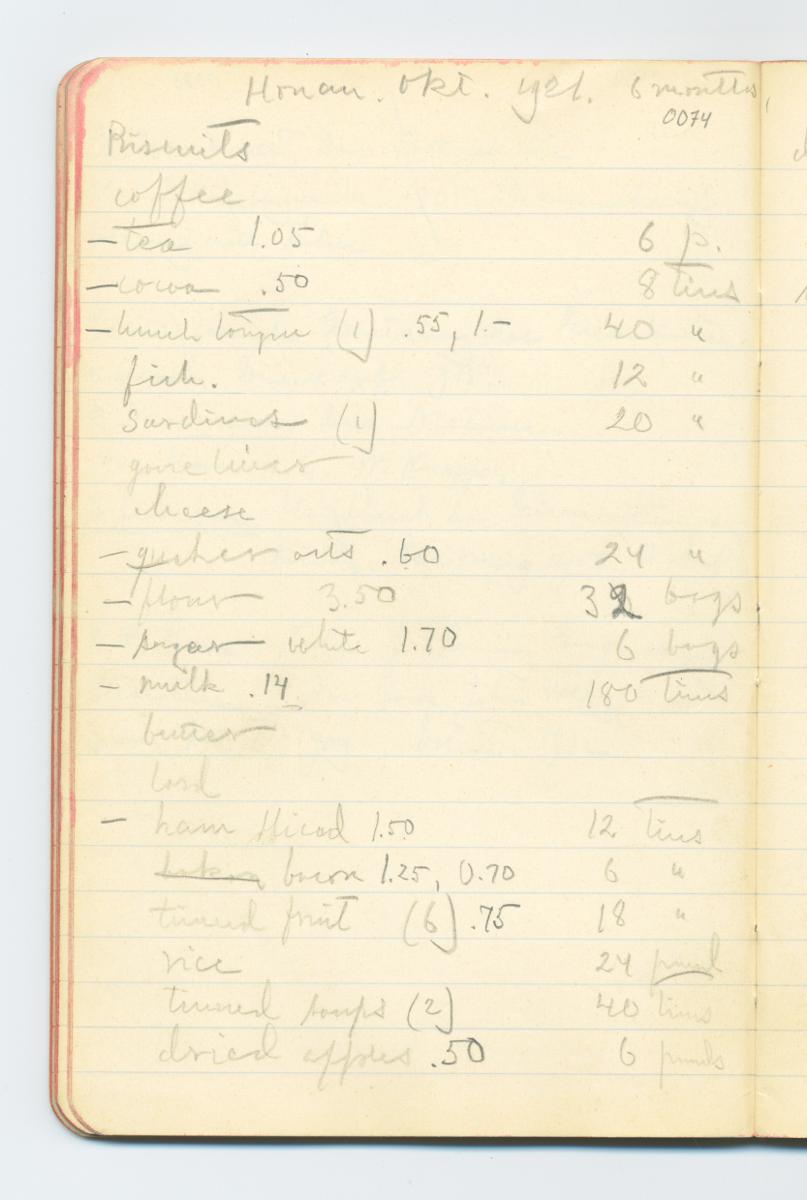 Honan. Okt. 1921. 6 months,
0074
Biscuits
coffee
– tea 1.05 6 p.
– cocoa .50 8 tins
– lunch tongue (1) .55, 1.– 40 "
fish. 12 "
Sardines (1) 20 "
goose liver
cheese
– quaker oats .60 24 "
– flour 3.50 32 bags
– sugar white 1.70 6 bags
– milk .14 180 tins
butter
lard
– ham sliced 1.50 12 tins
bacon 1.25, 0.70 6 "
tinned fruit (6) .75 18 "
rice 24 pund
tinned soups (2) 40 tins
dried apples .50 6 punds